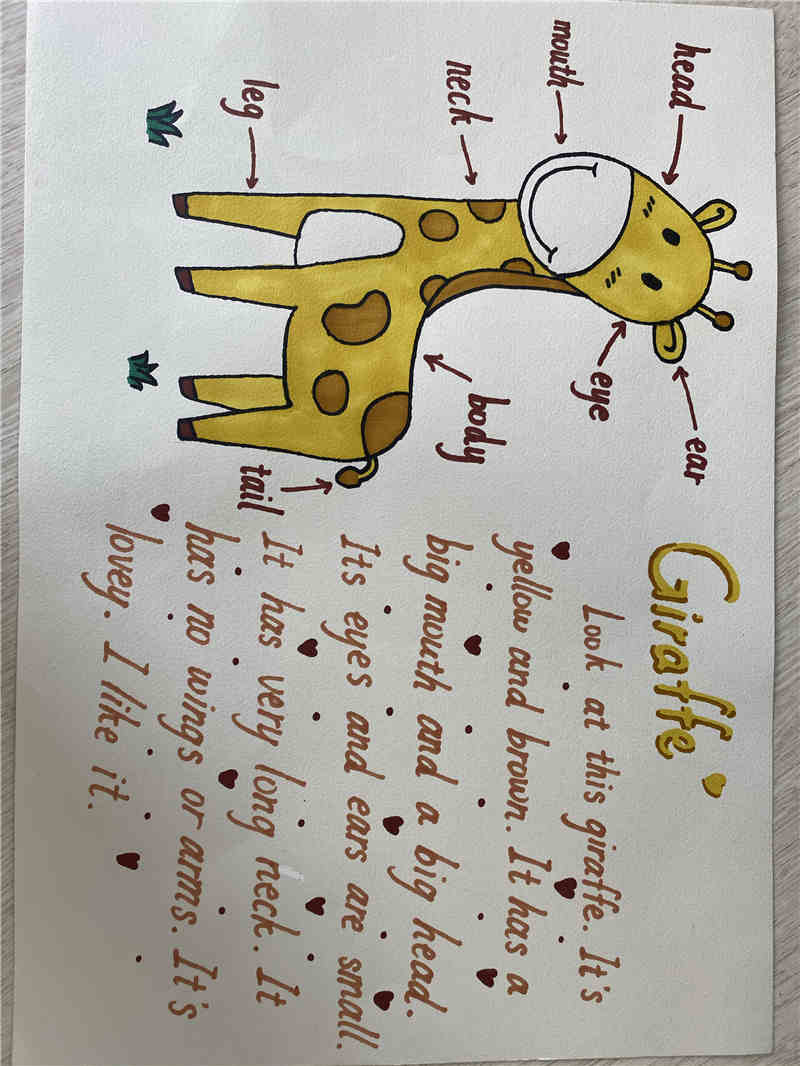 head
mouth
neck
leg
eye
ear
body
tail
Giraffe
Look at this giraffe. It's
yellow and brown. It has a
big mouth and a big head.
Its eyes and ears are small.
It has very long neck. It
has no wings or arms. It's
lovey. I like it.